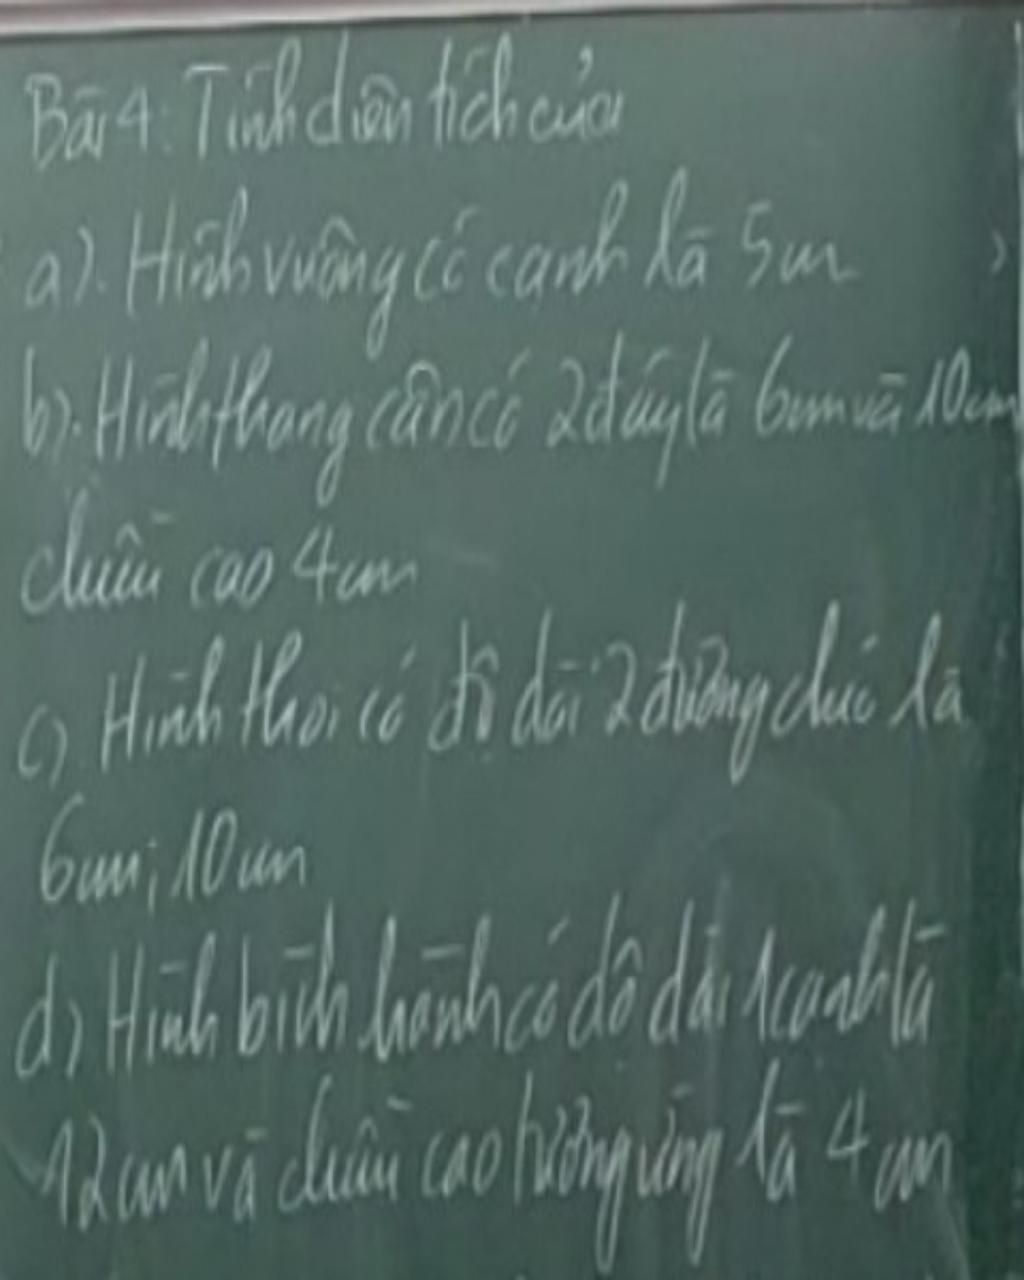 Bài 4: Tính diện tích của
a). Hình vuông có cạnh là 5cm
b). Hình thang cân có 2 đáy là 6cm và 10cm
chiều cao 4cm
c) Hình thoi có độ dài 2 đường chéo là
6cm; 10cm
d) Hình bình hành có độ dài 1 cạnh là
12cm và chiều cao tương ứng là 4cm